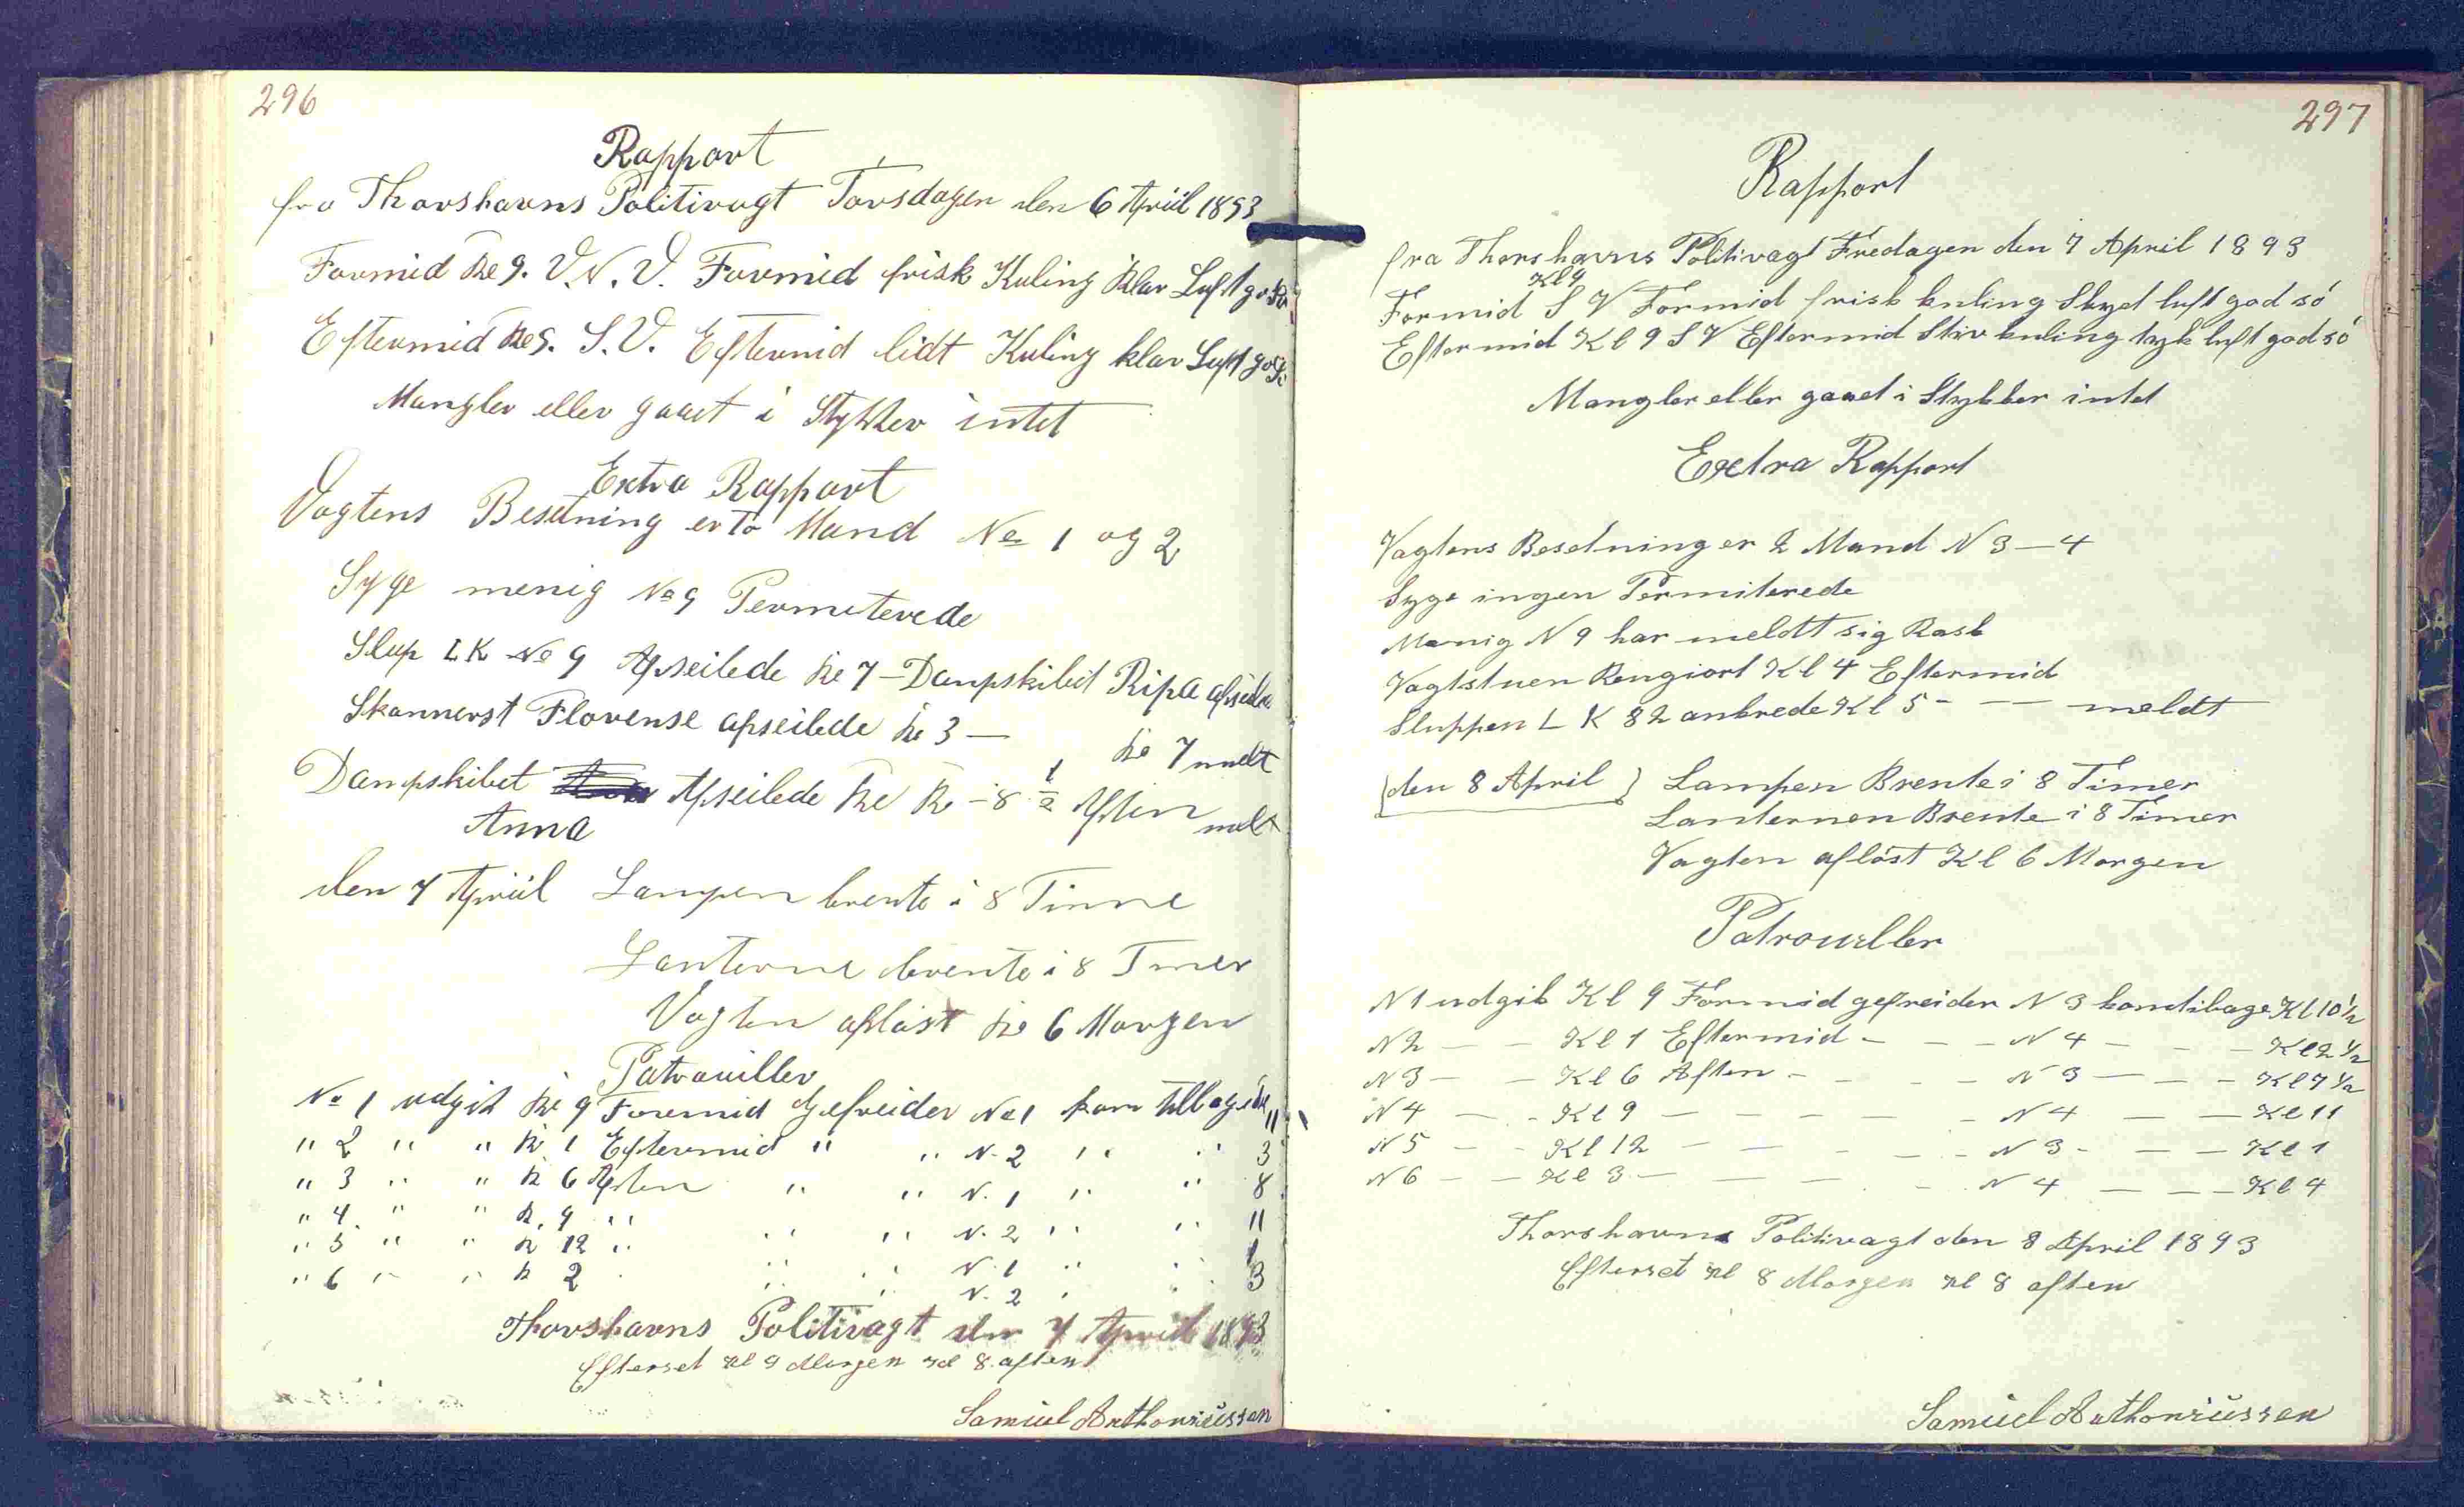 296
Rapport
fra Thorshavns Politivagt Torsdagen den 6 April 1893
Formid Kl 9. V. N. V. Formid frisk Kuling klar Luft god
Eftermid Kl 9. S. V. Eftermid lidt Kuling klar Luft god
Mangler eller gaaet i Stykker intet
Extra Rapport
Vagtens Besetning er To Mand No 1 og 2
Syge menig No 9 Permeterede
Slup LK No 9 Afseilede kl 7 – Dampskibet Ripa afseilede
Skonnerst Florense afseilede kl 3 — kl 7 meldt
Dampskibet Afseilede Kl K – 8 1/2 Aften melt
Anna
den 7 April Lampen brente i 8 Timne
Lanterne brente i 8 Tmer
Vagten afløst kl 6 Morgen
Patrouiller
No 1 udgik kl 9 Formid Gefreider No 1 kom tilbage kl 11
" 2 " " k 1 Eftermid " " N. 2 " " 3
" 3 " " k 6 Aften " " N. 1 " " 8
" 4 " " k. 9 " " " N. 2 " " 11
" 5 " " k 12 " " " N. 1 " " 1
" 6 " " k 2 " " N. 2 " " 3
Thorshavns Politivagt den 7 April 1893
Efterset kl 9 Morgen kl 8 aften
Samuel Anthoniussen
297
Rapport
fra Thorshavns Politivagt Fredagen den 7 April 1893
Kl 9
Formid S V Formid frisk kuling Skyet luft god só
Eftermid Kl 9 S V Eftermid Stiv kuling tyk luft god só
Mangler eller gaaet i Stykker intet
Extra Rapport
Vagtens Besetning er 2 Mand N 3 — 4
Syge ingen Permiterede
Menig N 9 har meldtt sig Rask
Vagtstuen Rengiort Kl 4 Eftermid
Sluppen L K 82 ankrede Kl 5 - — — meldt
den 8 April } Lampen Brente i 8 Timer
Lanternen Brente i 8 Timer
Vagten aflöst Kl 6 Morgen
Patrouller
N 1 udgik Kl 9 Formid gefreider N 3 komtibage Kl 10 1/2
N 2 — — Kl 1 Eftermid - — - N 4 — — - Kl 2 1/2
N 3 — — Kl 6 Aften - — - N 3 — — - Kl 7 1/2
N 4 — - Kl 9 — — — - N 4 — — Kl 11
N 5 — - Kl 12 — — - - N 3 - — — Kl 1
N 6 — — Kl 3 — — — - N 4 — — — Kl 4
Thorshavns Politivagt den 8 April 1893
Efterset kl 8 Morgen kl 8 aften
Samuel Anthoniussen